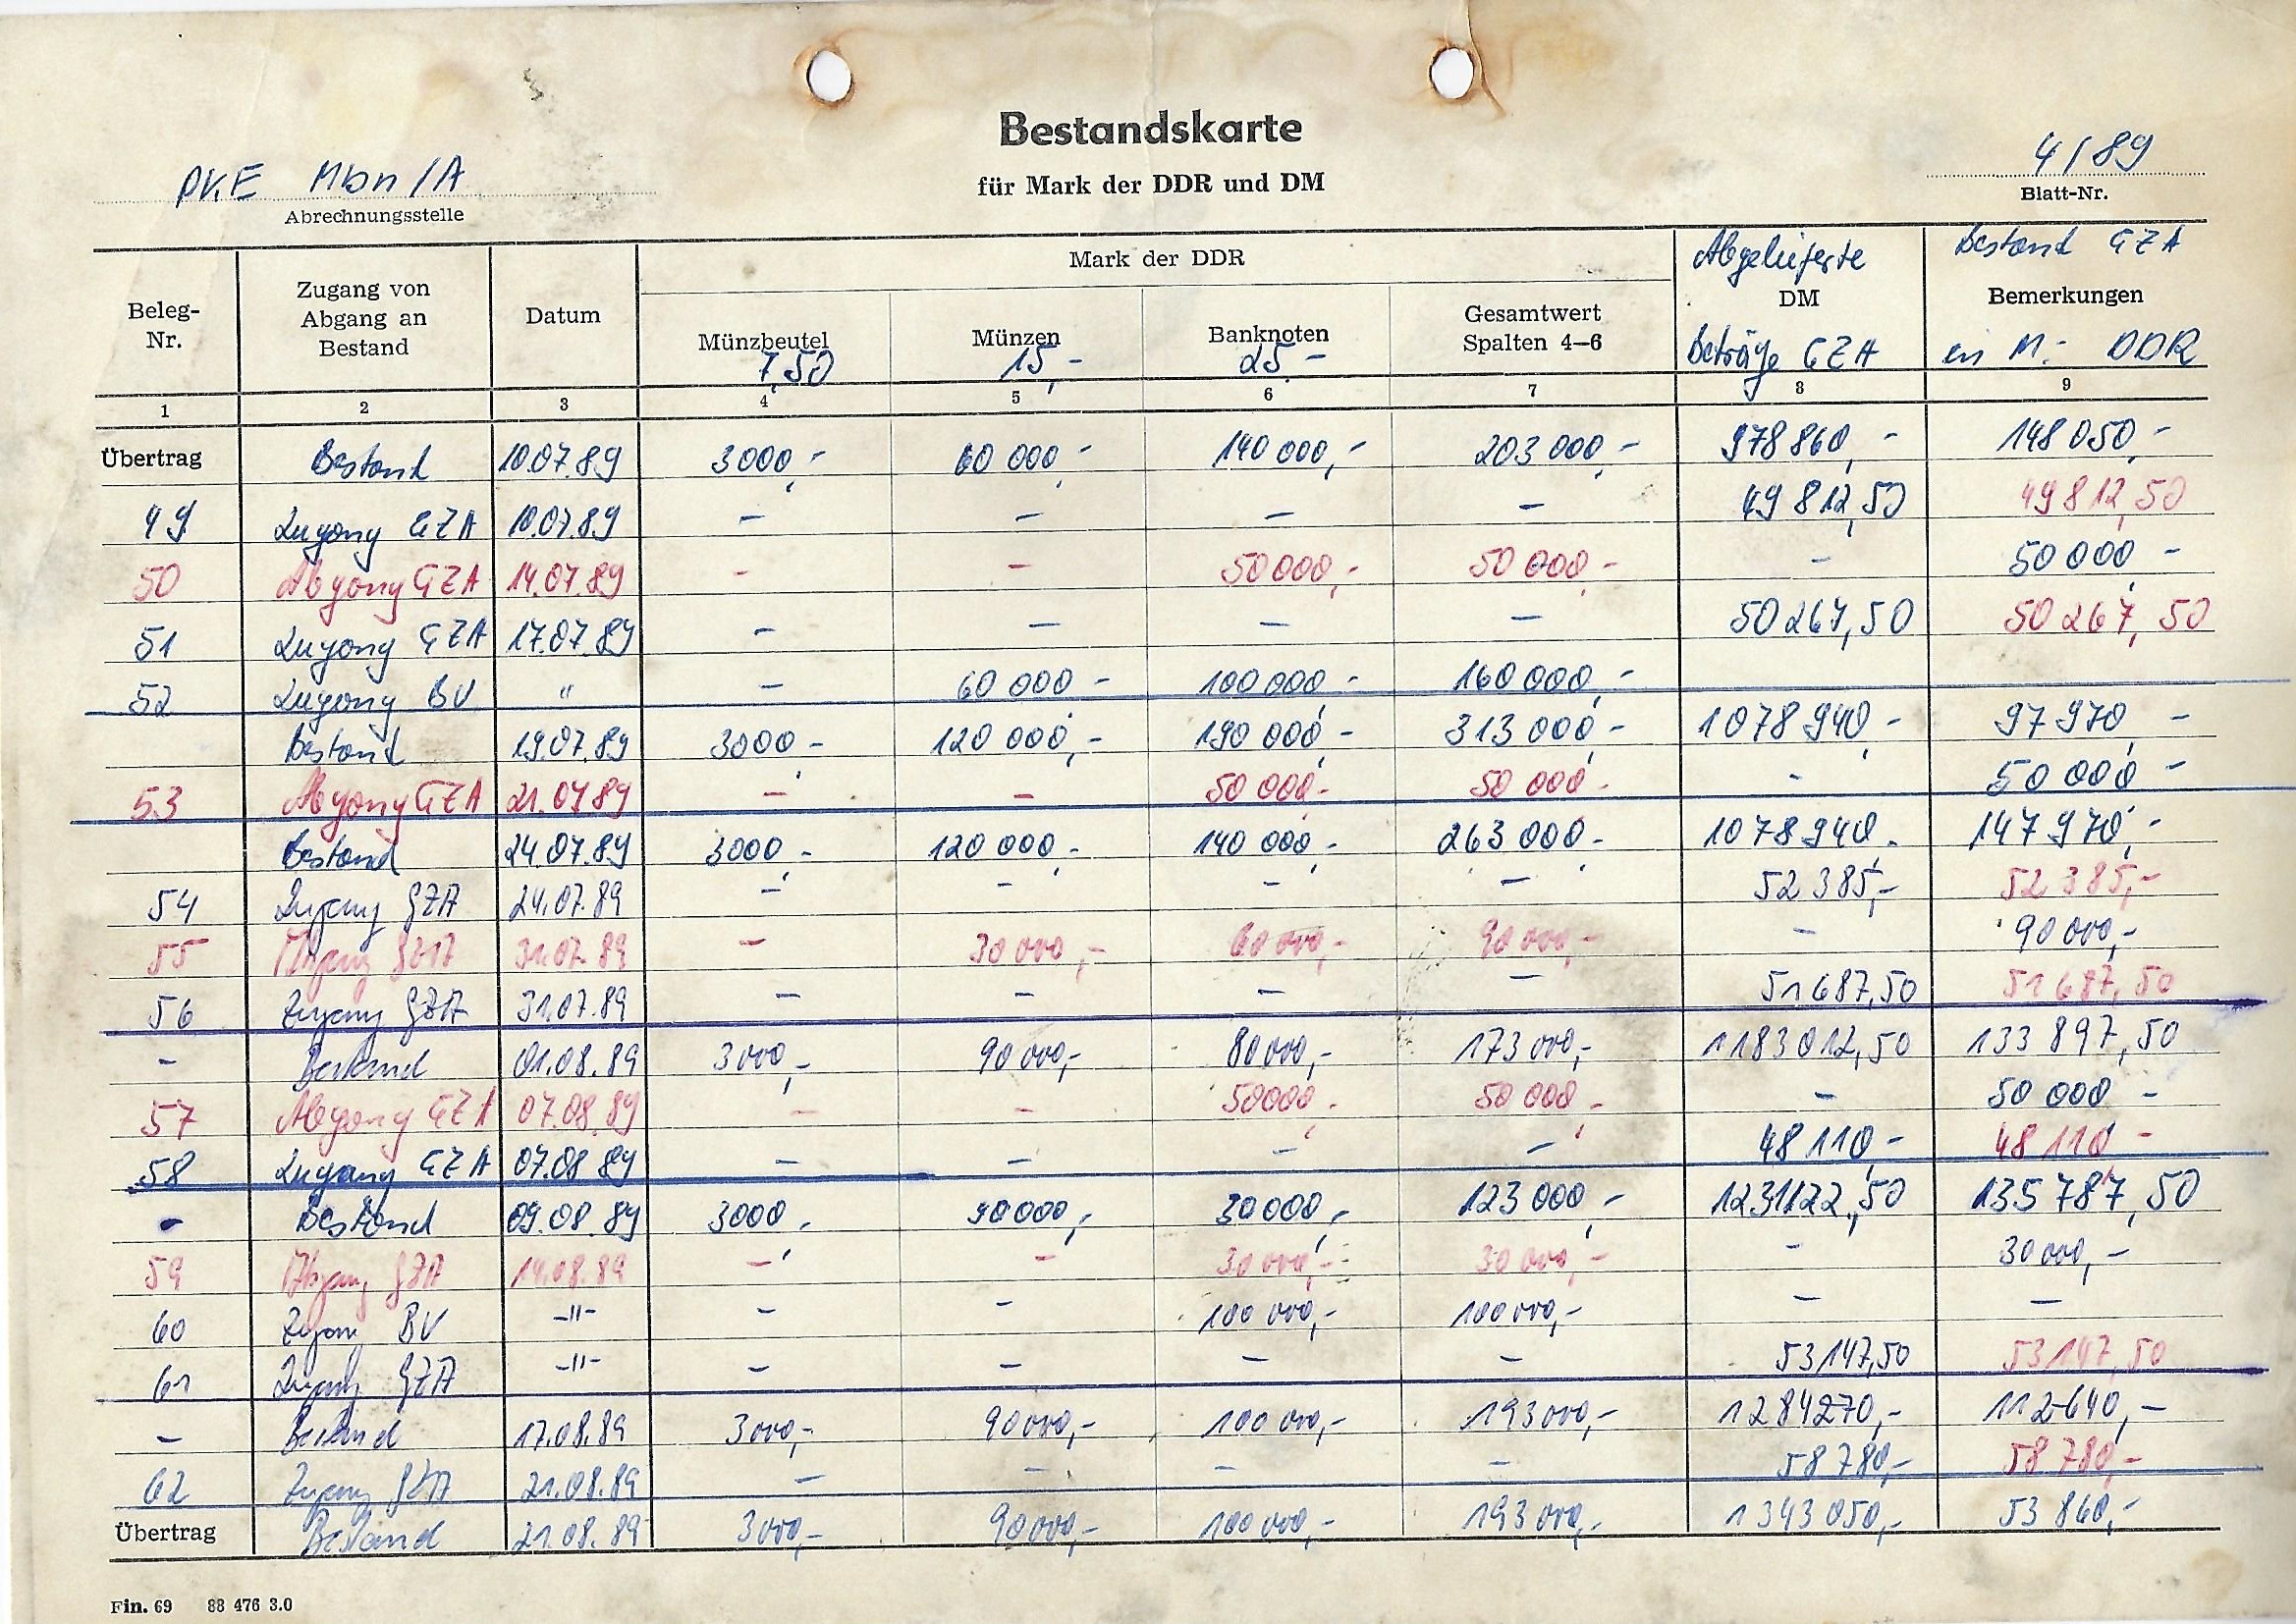 Bestandskarte
für Mark der DDR und DM
PKE Mbn/A
Abrechnungsstelle
4/89
Blatt-Nr.
Beleg-Nr. Zugang von Abgang an Bestand Datum Mark der DDR Abgelieferte DM Beträge GZA Bestand GZA Bemerkungen in M.- DDR
Münzbeutel 7,50 Münzen 15,- Banknoten 25,- Gesamtwert Spalten 4–6
1 2 3 4 5 6 7 8 9
Übertrag Bestand 10.07.89 3000,- 60 000,- 140 000,- 203 000,- 978 860,- 148 050,-
49 Zugang GZA 10.07.89 – – – – 49 812,50 49 812,50
50 Abgang GZA 14.07.89 – – 50 000,- 50 000,- – 50 000,-
51 Zugang GZA 17.07.89 – – – – 50 267,50 50 267,50
52 Zugang BV " – 60 000,- 100 000,- 160 000,-
Bestand 19.07.89 3000,- 120 000,- 190 000,- 313 000,- 1078 940,- 97 970,-
53 Abgang GZA 21.07.89 – – 50 000,- 50 000,- – 50 000,-
Bestand 24.07.89 3000,- 120 000,- 140 000,- 263 000,- 1078 940,- 147 970,-
54 Zugang GZA 24.07.89 – – – – 52 385,- 52 385,-
55 Abgang GZA 31.07.89 – 30 000,- 60 000,- 90 000,- – 90 000,-
56 Zugang GZA 31.07.89 – – – – 51 687,50 51 687,50
– Bestand 01.08.89 3000,- 90 000,- 80 000,- 173 000,- 1183 012,50 133 897,50
57 Abgang GZA 07.08.89 – – 50000,- 50 000,- – 50 000,-
58 Zugang GZA 07.08.89 – – – – 48 110,- 48 110,-
– Bestand 09.08.89 3000,- 90000,- 30000,- 123 000,- 1231122,50 135 787,50
59 Abgang GZA 14.08.89 – – 30 000,- 30 000,- – 30 000,-
60 Zugang BV –"– – – 100 000,- 100 000,- – –
61 Zugang GZA –"– – – – – 53147,50 53147,50
– Bestand 17.08.89 3000,- 90000,- 100 000,- 193000,- 1284270,- 112640,-
62 Zugang GZA 21.08.89 – – – – 58 780,- 58 780,-
Übertrag Bestand 21.08.89 3000,- 90000,- 100 000,- 193 000,- 1 343 050,- 53 860,-
Fin. 69 88 476 3.0